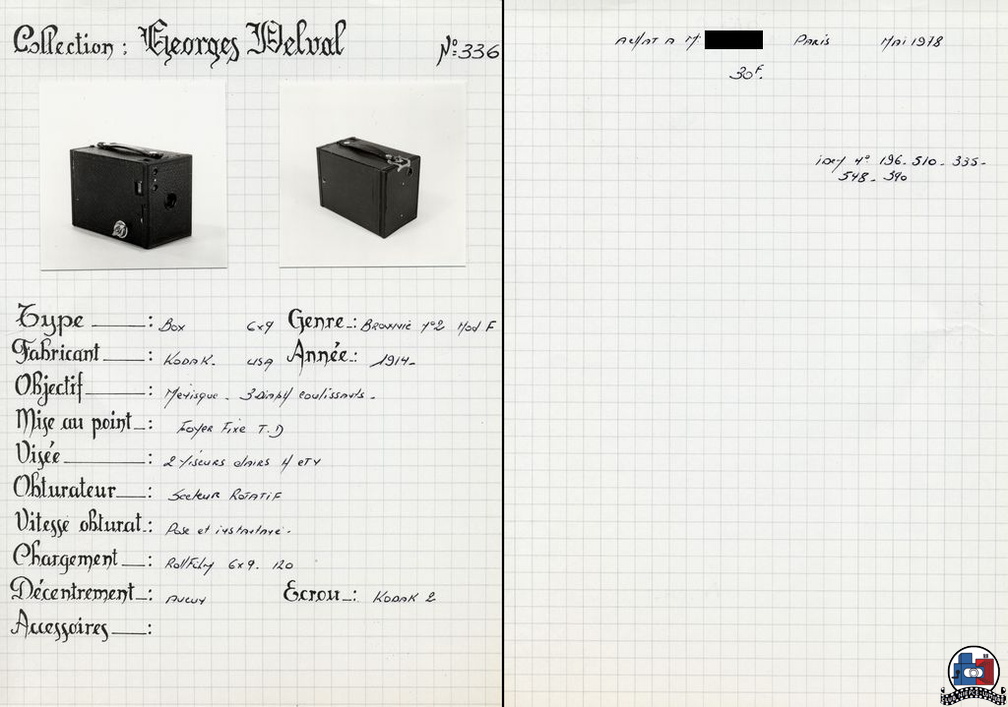 Collection : Georges Delval
N° 336
Type : Box 6x9 Genre : Brownie n°2 Mod F
Fabricant : KODAK. USA Année : 1914-
Objectif : Ménisque - 3 Diaph coulissants -
Mise au point : Foyer Fixe T.D
Visée : 2 Viseurs clairs H et V
Obturateur : Secteur Rotatif
Vitesse obturat : Pose et instantané -
Chargement : RollFilm 6x9. 120
Décentrement : Aucun Ecrou : KODAK 2
Accessoires :
Achat a M. Paris Mai 1978
30F.
idem n° 196 - 510 - 335 -
548 - 390